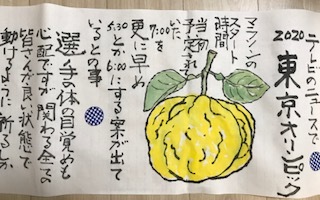 テレビのニュースで
2020
東京オリンピック
マラソンの
スタート
時間
当初
予定されて
いた
7:00を
更に早め
5:30とか6:00にする案が出て
いるとの事
選手の体の目覚めも
心配ですが関わる全ての
皆さんが良い状態で
動けるように祈るしか